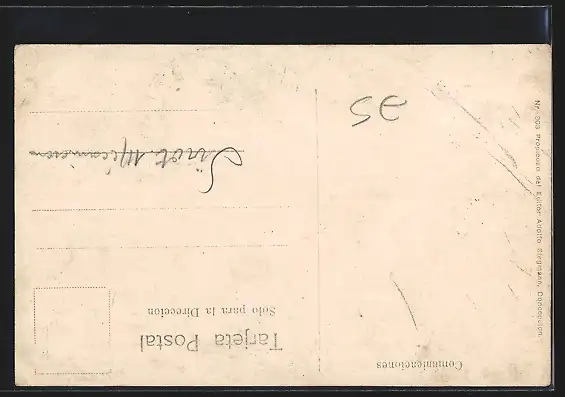 Tarjeta Postal
Solo para la Direccion
Comunicaciones
25
Nr. 303 Propiedad del Editor Adolfo Stegmann, Concepcion.